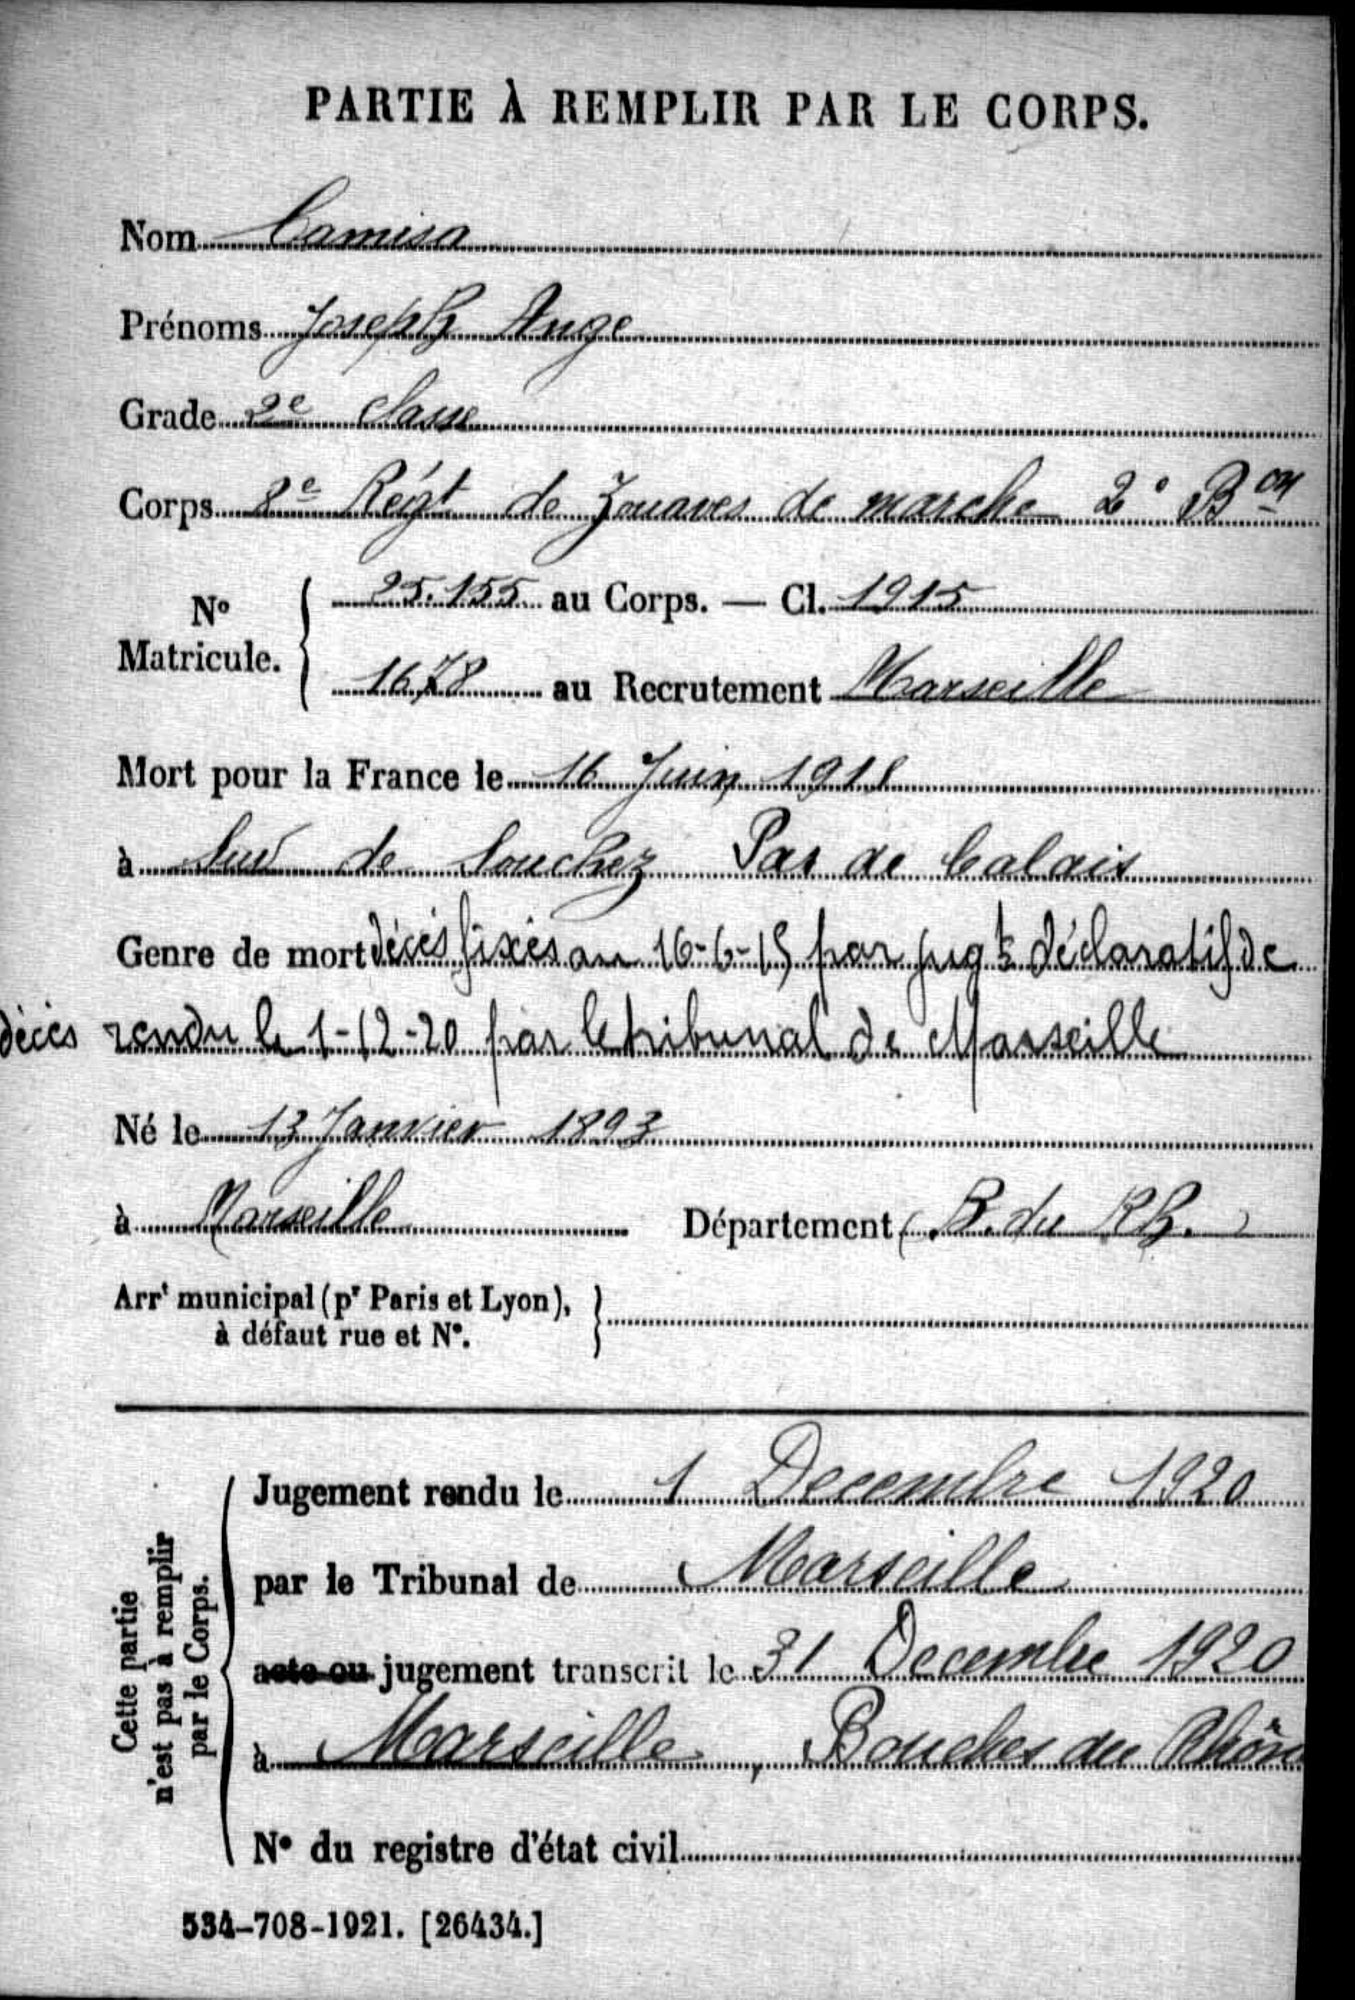 PARTIE À REMPLIR PAR LE CORPS.
Nom Camisa
Prénoms Joseph Ange
Grade 2e classe
Corps 8e Régt de Zouaves de marche 2e Bon
No Matricule. 25.155 au Corps. — Cl. 1915
1678 au Recrutement Marseille
Mort pour la France le 16 Juin 1915
à Sud de Souchez Pas de Calais
Genre de mort décès fixés au 16-6-15 par jugt déclaratif de
décès rendu le 1-12-20 par le tribunal de Marseille
Né le 13 Janvier 1893
à Marseille Département (B. du Rh.)
Arrt municipal (pr Paris et Lyon),
à défaut rue et No.
Cette partie
n'est pas à remplir
par le Corps.
Jugement rendu le 1 Decembre 1920
par le Tribunal de Marseille
acte ou jugement transcrit le 31 Decembre 1920
à Marseille, Bouches du Rhône
No du registre d'état civil
534-708-1921. [26434.]